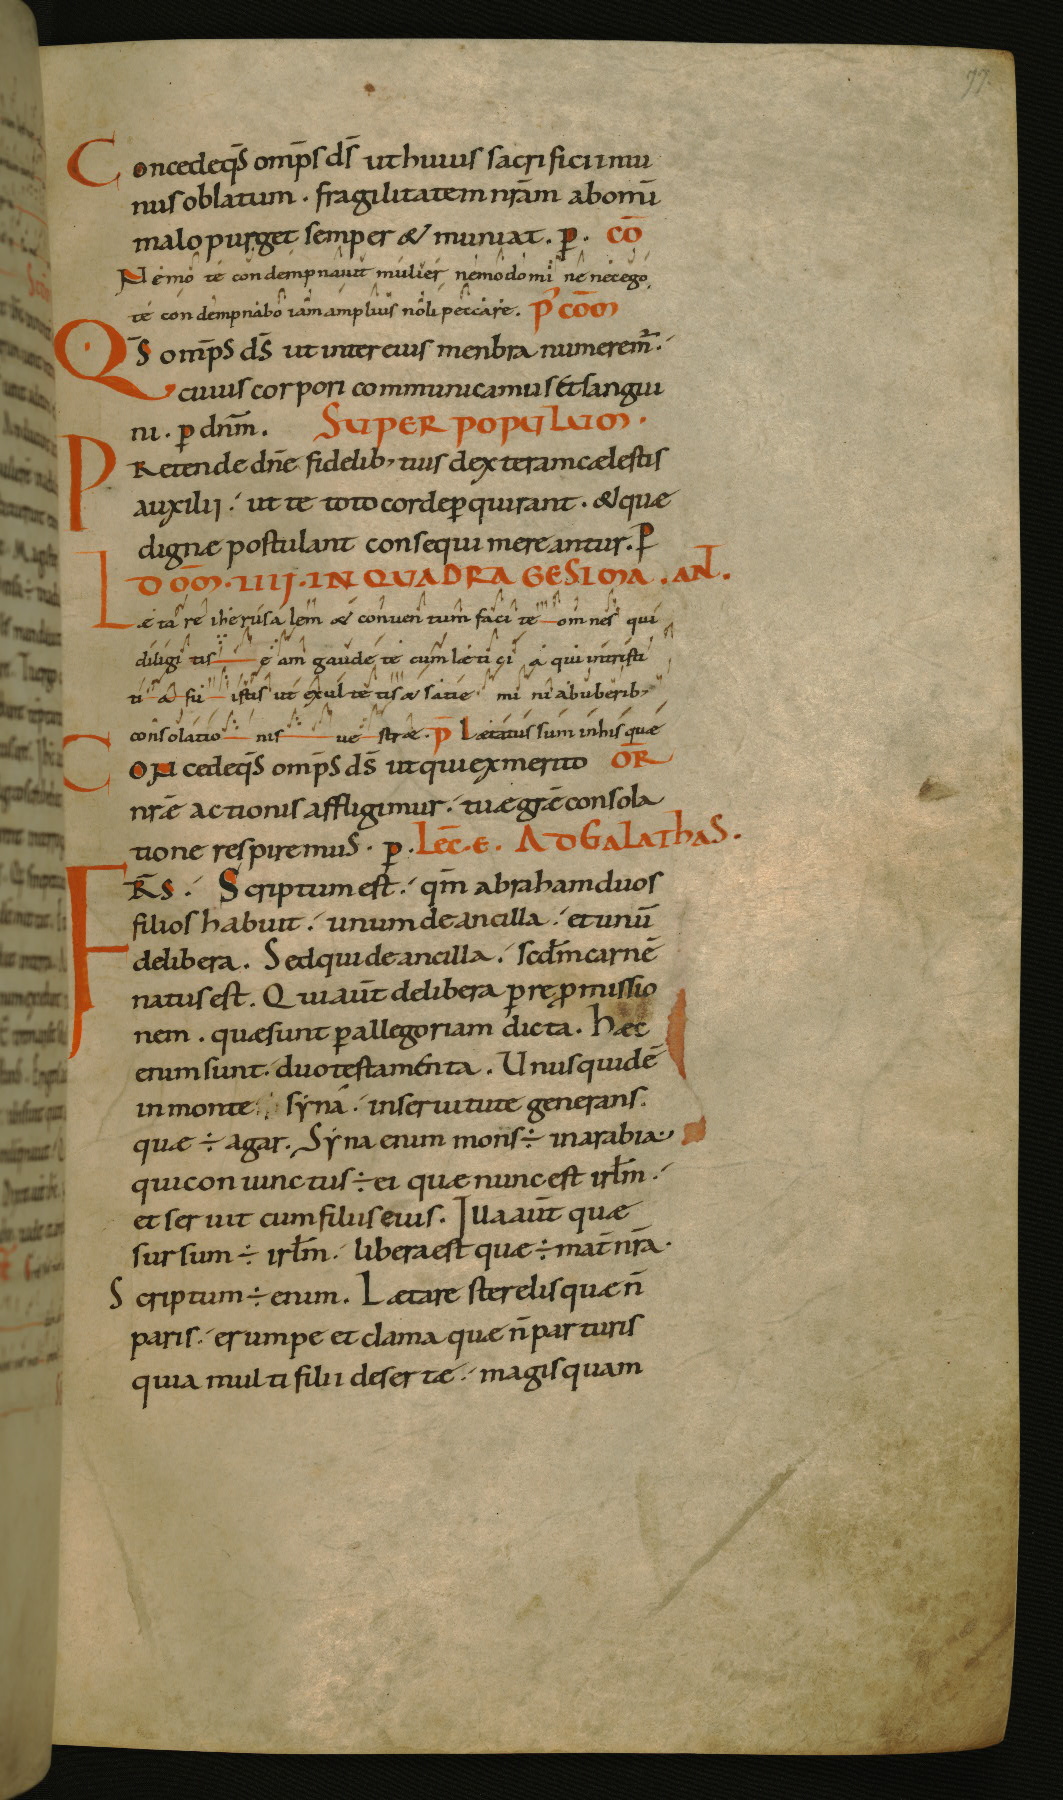 77.
Concedeq̄s om̄ps ds̄ ut huius sacrificii mu
nus oblatum . fragilitatem nr̄am ab omī
malo purget semper & muniat . p̄ . CŌ
Nemo te condempnauit mulier nemo domi ne nec ego
te condempnabo iam amplius noli peccare . P̄ COM̄
Qs̄ om̄ps ds̄ ut inter eius menbra numerem̄ .
cuius corpori communicamus et sangui
ni . p̄ dnm̄ . SUPER POPULUM .
PRetende dn̄e fidelib; tuis dexteram cælestis
auxilii . ut te toto corde p̄quirant . & quæ
digne postulant consequi mereantur . P̄
DOM̄ . IIII . IN QUADRAGESIMA . AN̄ .
Lætare iherusalem & conuentum facite omnes qui
diligitis eam gaudete cum læticia qui in tristi
tia fuistis ut exultetis & satiemini ab uberib;
consolationis uestræ . p̄ Lætatus sum in his quæ
CONcedeq̄s om̄ps ds̄ ut qui ex merito OR̄
nr̄æ actionis affligimur . tuæ gr̄æ consola
tione respiremus . p̄ . Lec̄ . E . AD GALATHAS .
FR̄S . Scriptum est . qm̄ abraham duos
filios habuit . unum de ancilla . et unū
de libera . Sed qui de ancilla . scd̄m carnē
natus est . Qui aut̄ de libera p̄ rep̄missio
nem . quæ sunt p̄ allegoriam dicta . Hæc
enim sunt . duo testamenta . Unus quidē
in monte syna . in seruitute generans .
quæ ÷ agar . Syna enim mons ÷ in arabia .
qui coniunctus ÷ ei quæ nunc est irl̄m .
et seruit cum filiis eius . Illa aut̄ quæ
sursum ÷ irl̄m . libera est quæ ÷ mat̄ nr̄a .
Scriptum ÷ enim . Lætare sterelis quæ n̄
paris . erumpe et clama quæ n̄ parturis
quia multi filii desertæ . magis quam